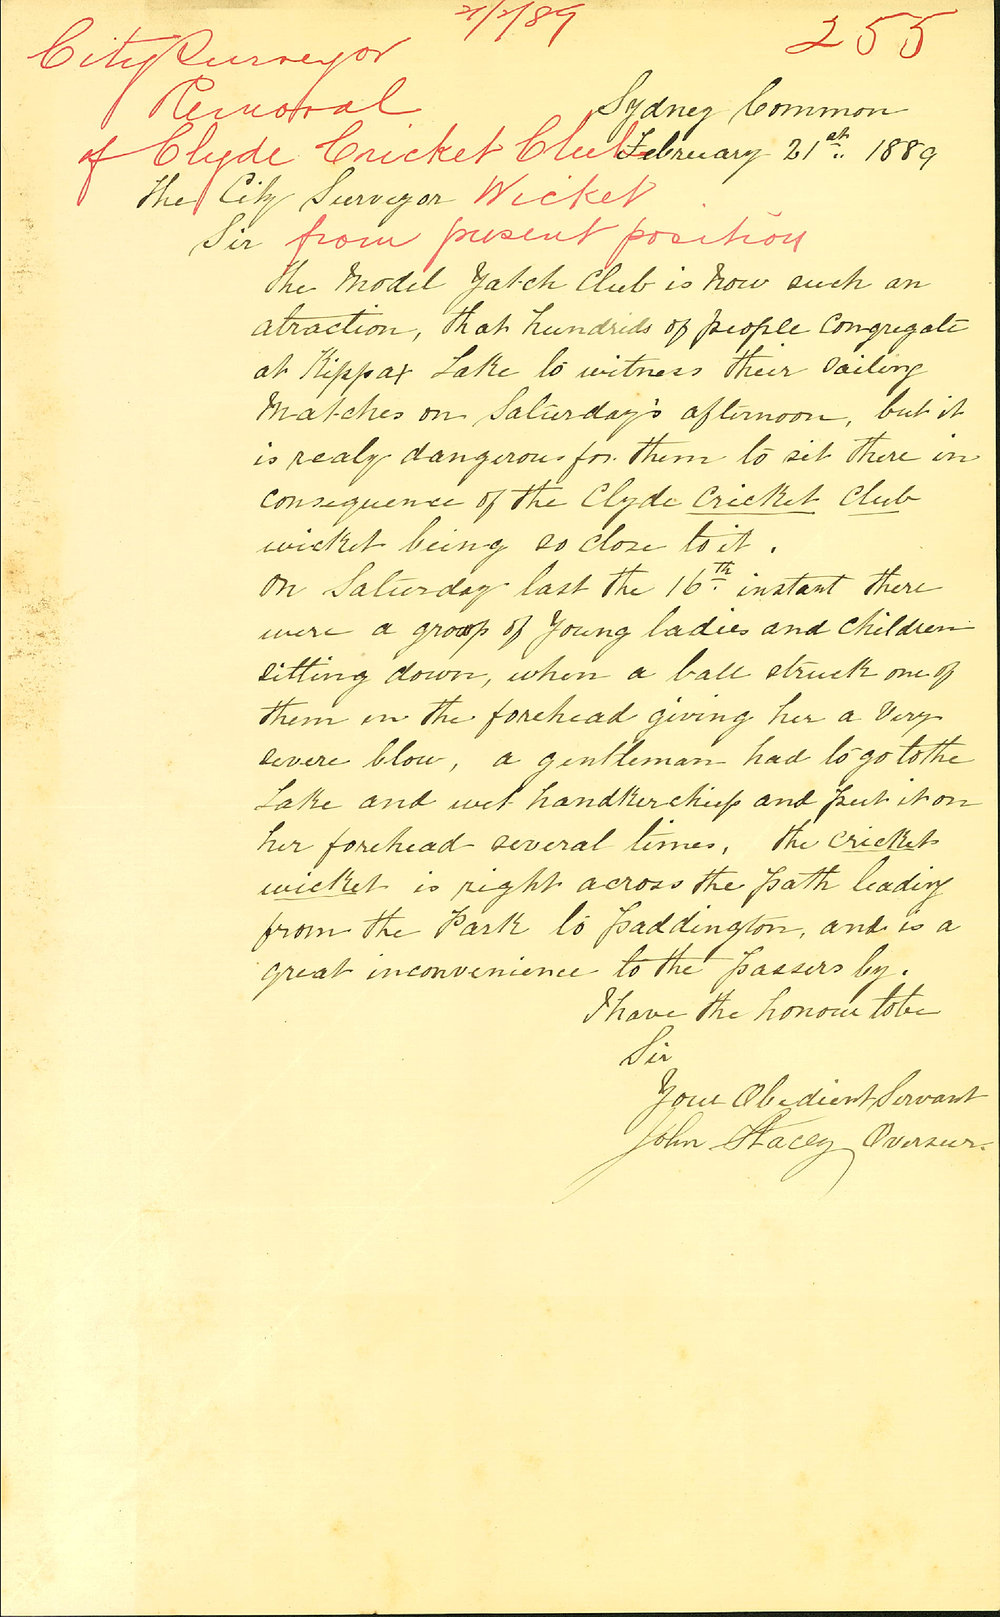 21/2/89
255
City Surveyor
Removal
of Clyde Cricket Club
Wicket
from present position
Sydney Common
February 21st. 1889
The City Surveyor
Sir
The Model Yatch Club is Now such an
atraction, that hundrids of people Congregate
at Kippax Lake to witness their sailing
Matches on Saturday's afternoon, but it
is realy dangerous for them to sit there in
consequence of the Clyde Cricket Club
wicket being so close to it.
On Saturday last the 16th. instant there
were a group of Young ladies and Children
sitting down, when a ball struck one of
them in the forehead giving her a Very
severe blow, a gentleman had to go to the
Lake and wet handkerchief and put it on
her forehead several times, the cricket
wicket is right across the path leading
from the Park to Paddington, and is a
great inconvenience to the passers by.
I have the honour to be
Sir
Your Obedient Servant
John Stacey Overseer.